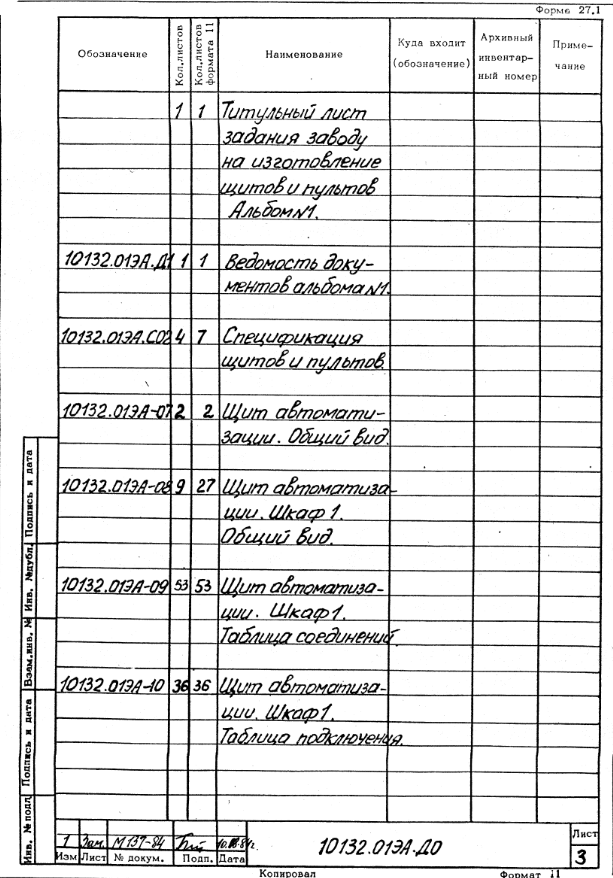 Форма 27.1
Обозначение Кол.листов Кол.листов формата 11 Наименование Куда входит (обозначение) Архивный инвентарный номер Примечание
1 1 Титульный лист
задания заводу
на изготовление
щитов и пультов
Альбом №1.
10132.01ЭА.Д1 1 1 Ведомость доку-
ментов альбома №1.
10132.01ЭА.С02 4 7 Спецификация
щитов и пультов.
10132.01ЭА-07 2 2 Щит автомати-
зации. Общий вид.
10132.01ЭА-08 9 27 Щит автоматиза-
ции. Шкаф 1.
Общий вид.
10132.01ЭА-09 53 53 Щит автоматиза-
ции. Шкаф 1.
Таблица соединений.
10132.01ЭА-10 36 36 Щит автоматиза-
ции. Шкаф 1.
Таблица подключения.
Инв. № подл Подпись и дата Взам.инв. № Инв. №дубл. Подпись и дата
1 Зам. М137-84
Изм Лист № докум. Подп. Дата
10132.01ЭА.Д0
Лист
3
Копировал Формат 11